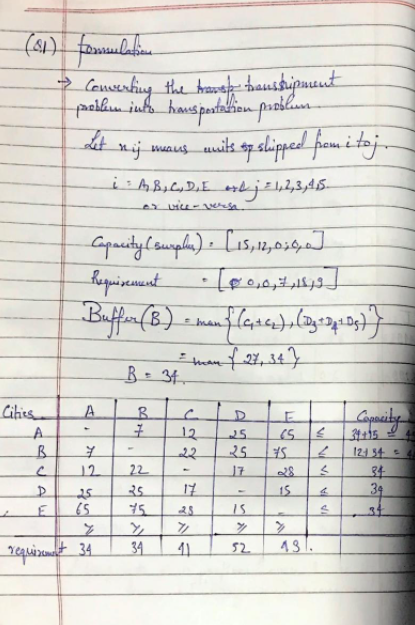 (Q1) formulation
→ Converting the transp transhipment
problem into transportation problem
Let xij means units of shipped from i to j.
i = A,B,C,D,E and j = 1,2,3,4,5
or vice-versa.
Capacity (surplus) = [15,12,0,0,0]
Requirement = [0,0,7,18,9]
Buffer (B) = max {(C1+C2), (D3+D4+D5)}
= max {27, 34}
B = 34.
Cities A B C D E Capacity
A - 7 12 25 65 ≤ 34+15 =
B 7 - 22 25 75 ≤ 12+34 =
C 12 22 - 17 28 ≤ 34
D 25 25 17 - 15 ≤ 34
E 65 75 28 15 - ≤ 34
≥ ≥ ≥ ≥ ≥
requirement 34 34 41 52 43.